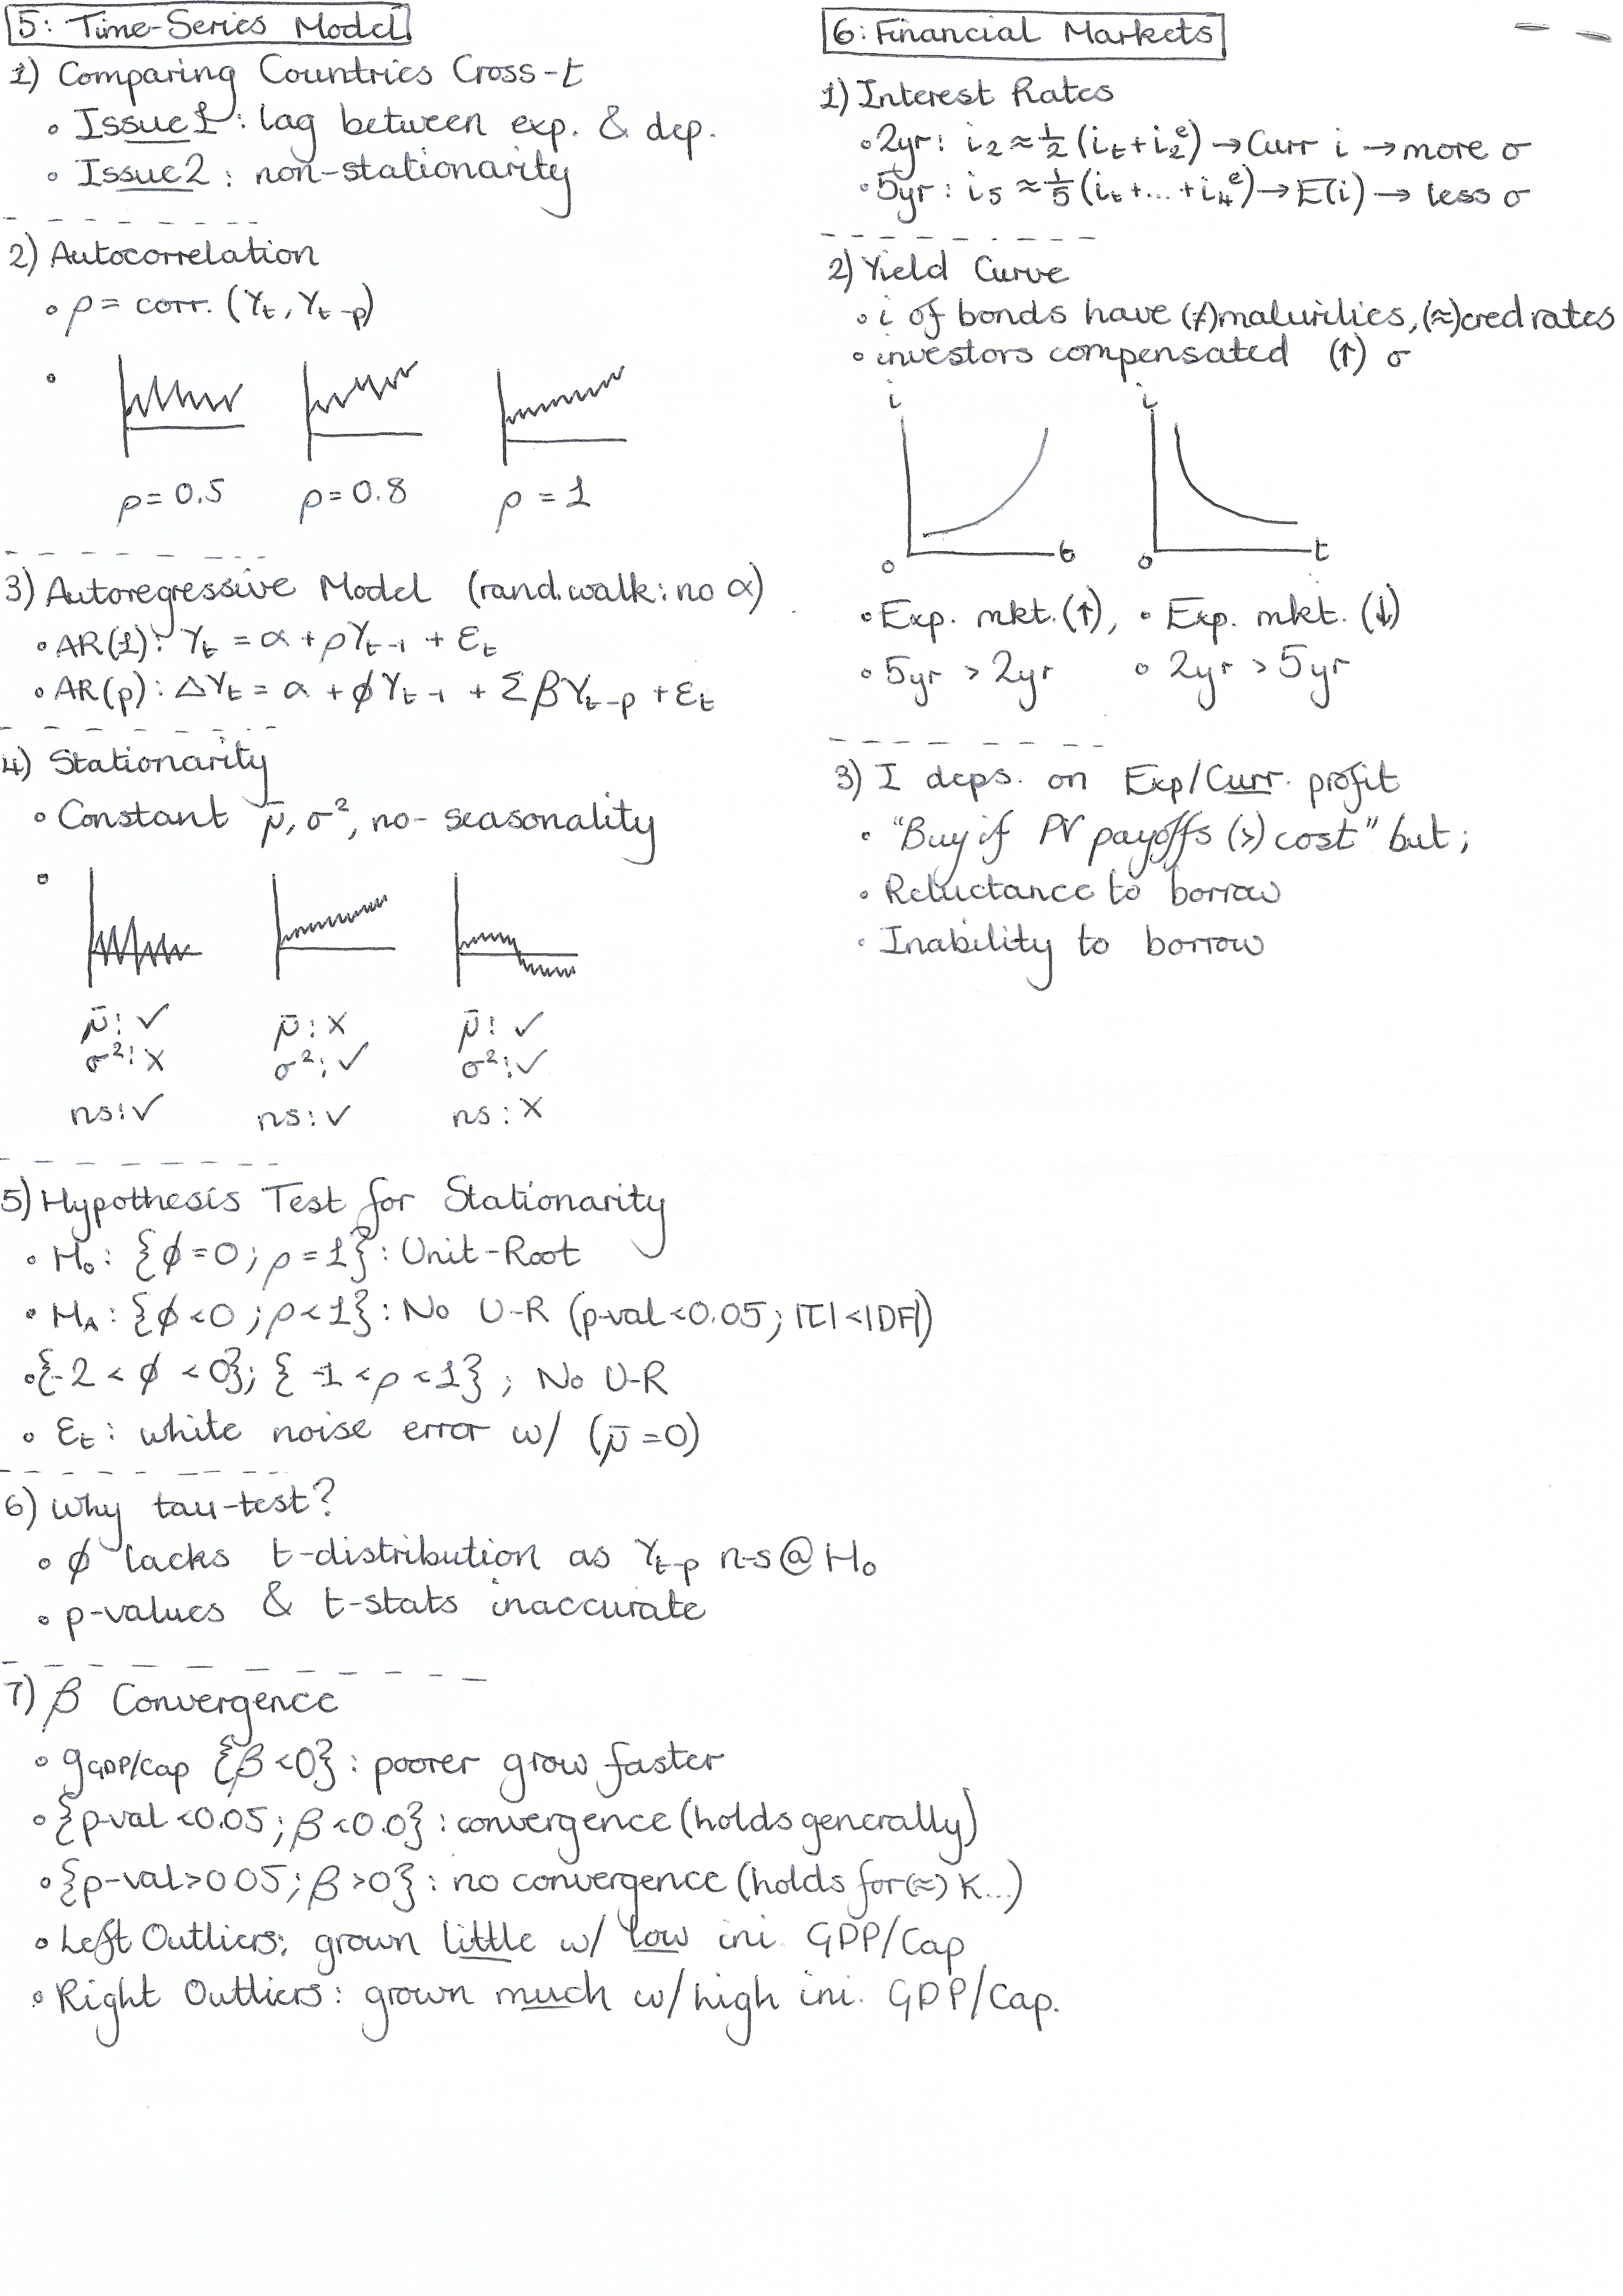 5: Time-Series Model
1) Comparing Countries Cross-t
• Issue1: lag between exp. & dep.
• Issue2: non-stationarity
2) Autocorrelation
• ρ = corr. (Yt, Yt-p)
ρ = 0.5 ρ = 0.8 ρ = 1
3) Autoregressive Model (rand. walk: no α)
• AR(1): Yt = α + ρYt-1 + εt
• AR(p): ΔYt = α + ϕYt-1 + ΣβYt-p + εt
4) Stationarity
• Constant μ̄, σ², no-seasonality
μ̄: ✓ μ̄: X μ̄: ✓
σ²: X σ²: ✓ σ²: ✓
ns: ✓ ns: ✓ ns: X
5) Hypothesis Test for Stationarity
• H₀: {ϕ = 0; ρ = 1}: Unit-Root
• HA: {ϕ < 0; ρ < 1}: No U-R (p-val < 0.05; |τ| < |DF|)
• {-2 < ϕ < 0}; {-1 < ρ < 1}; No U-R
• εt: white noise error w/ (μ̄ = 0)
6) Why tau-test?
• ϕ lacks t-distribution as Yt-p n-s @ H₀
• p-values & t-stats inaccurate
7) β Convergence
• gGDP/Cap {β < 0}: poorer grow faster
• {p-val < 0.05; β < 0.0}: convergence (holds generally)
• {p-val > 0.05; β > 0}: no convergence (holds for (≈) K...)
• Left Outliers: grown little w/ low ini. GDP/Cap
• Right Outliers: grown much w/ high ini. GDP/Cap.
6: Financial Markets
1) Interest Rates
• 2yr: i₂ ≈ ½ (it + i₂ᵉ) → Curr i → more σ
• 5yr: i₅ ≈ 1/5 (it + ... + i₄ᵉ) → E(i) → less σ
2) Yield Curve
• i of bonds have (≠) maturities, (≈) cred rates
• investors compensated (↑) σ
i i
0 t 0 t
• Exp. mkt. (↑), • Exp. mkt. (↓)
• 5yr > 2yr • 2yr > 5yr
3) I deps. on Exp/Curr. profit
• "Buy if PV payoffs (>) cost" but;
• Reluctance to borrow
• Inability to borrow